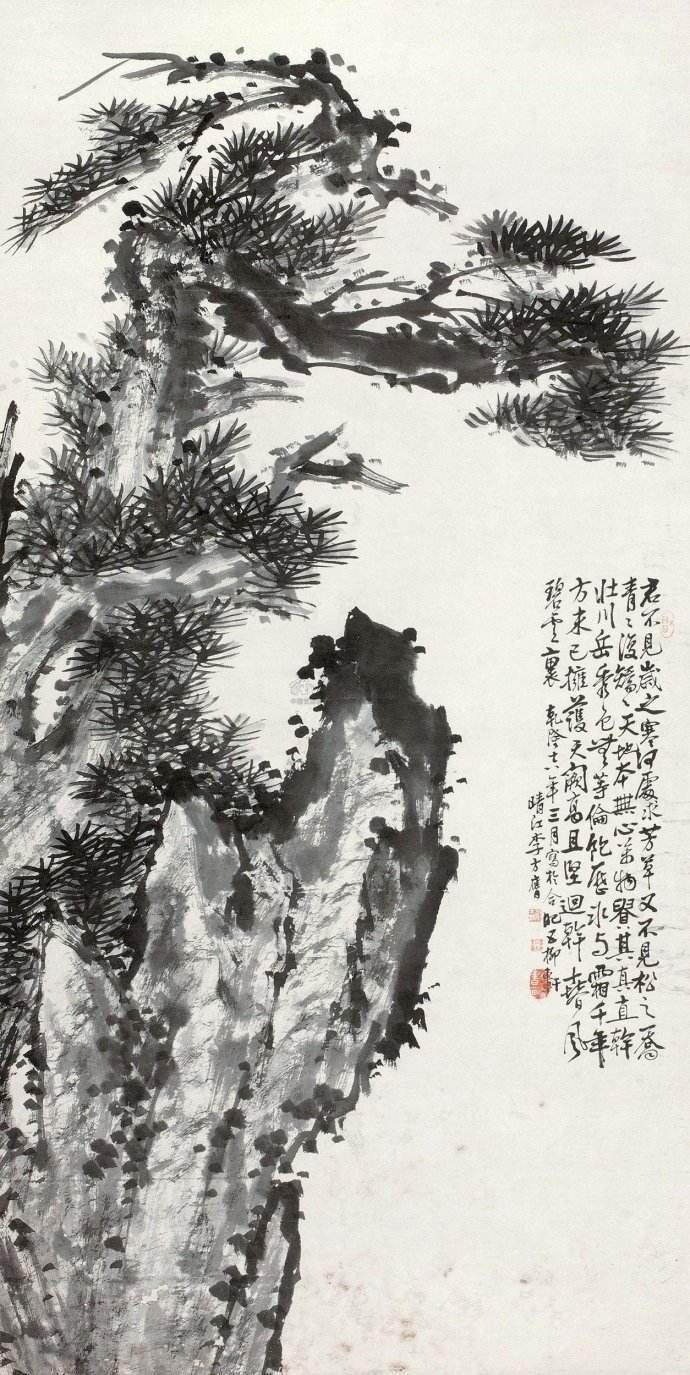 君不见岁之寒何處求芳草又不見松之喬
青々復矯々天地本無心萬物貴其真直幹
壮川岳秀色無等倫飽歷冰与霜千年
方未已擁護天闕高且堅迴幹春風
碧雲裏 乾隆十八年三月寫於合肥五柳軒
晴江李方膺